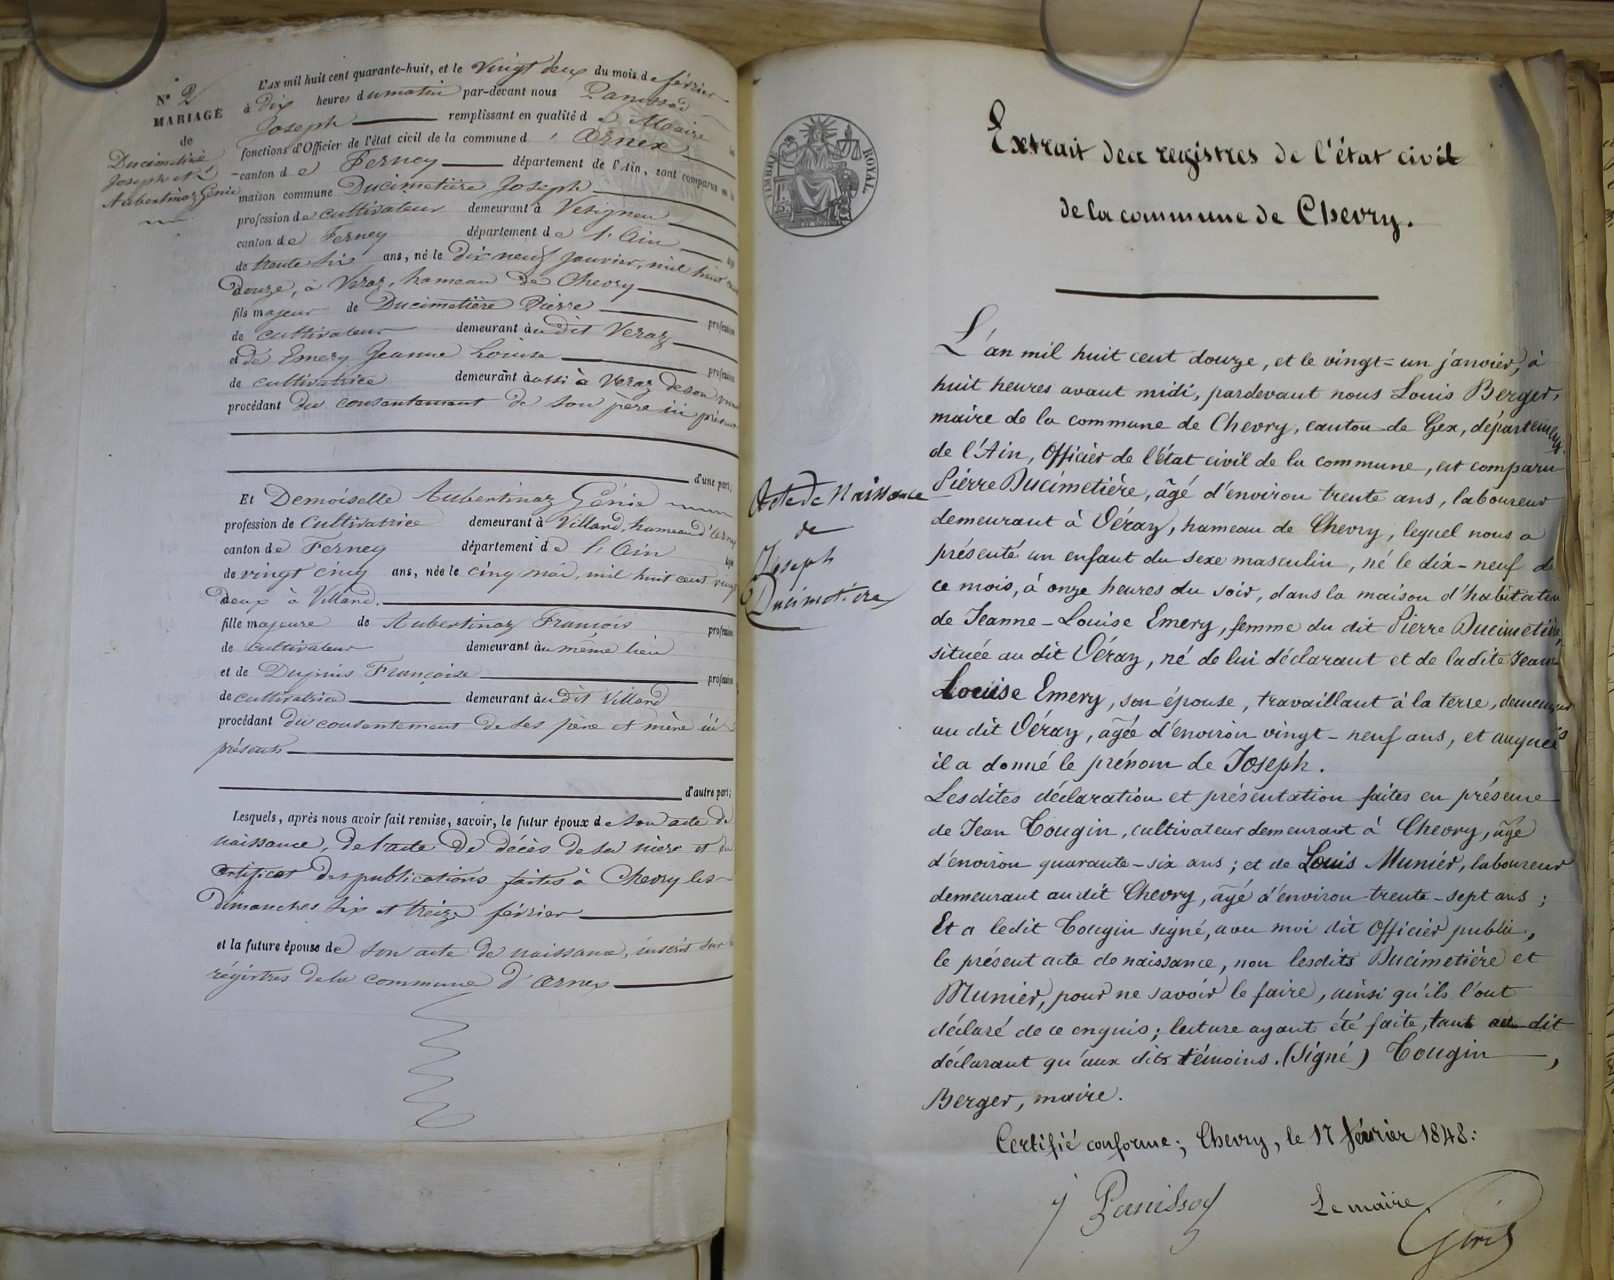 N° 2
MARIAGE
de
Ducimetière
Joseph et
Aubertinaz Génie
L'AN mil huit cent quarante-huit, et le vingt deux du mois de février
à Dix heures du matin par-devant nous Panissod
Joseph remplissant en qualité de Maire
fonctions d'Officier de l'état civil de la commune d'Ornex
canton de Ferney département de l'Ain, sont comparus en la
maison commune Ducimetière Joseph
profession de cultivateur demeurant à Vesegneu
canton de Ferney département de l'Ain
de trente six ans, né le dix neuf janvier, mil huit cent
douze, à Veraz, hameau de Chevry
fils majeur de Ducimetière Pierre profession
de cultivateur demeurant au dit Veraz
et de Emery Jeanne Louise profession
de cultivatrice demeurant aussi à Veraz de son vivant
procédant du consentement de son père ici présent
d'une part;
Et Demoiselle Aubertinaz Génie
profession de Cultivatrice demeurant à Villard, hameau d'Ornex
canton de Ferney département de l'Ain
de vingt cinq ans, née le cinq mai, mil huit cent vingt
deux à Villard.
fille majeure de Aubertinaz François profession
de cultivateur demeurant au même lieu
et de Dupuis Françoise profession
de cultivatrice demeurant au dit Villard
procédant du consentement de ses père et mère ici
présents
d'autre part;
Lesquels, après nous avoir fait remise, savoir, le futur époux de son acte de
naissance, de l'acte de décès de sa mère et du
certificat des publications faites à Chevry les
dimanches six et treize février
et la future épouse de son acte de naissance, inscrit sur
régistres de la commune d'Ornex
TIMBRE ROYAL
Extrait des registres de l'état civil
de la commune de Chevry.
Acte de Naissance
de
Joseph
Ducimetière
L'an mil huit cent douze, et le vingt-un janvier, à
huit heures avant midi, pardevant nous Louis Berger,
maire de la commune de Chevry, canton de Gex, département
de l'Ain, Officier de l'état civil de la commune, est comparu
Pierre Ducimetière, âgé d'environ trente ans, laboureur
demeurant à Véraz, hameau de Chevry, lequel nous a
présenté un enfant du sexe masculin, né le dix-neuf de
ce mois, à onze heures du soir, dans la maison d'habitation
de Jeanne-Louise Emery, femme du dit Pierre Ducimetière,
située au dit Véraz, né de lui déclarant et de ladite Jeanne
Louise Emery, son épouse, travaillant à la terre, demeurant
au dit Véraz, âgée d'environ vingt-neuf ans, et auquel
il a donné le prénom de Joseph.
Lesdites déclaration et présentation faites en présence
de Jean Tougin, cultivateur demeurant à Chevry, âgé
d'environ quarante-six ans; et de Louis Munier, laboureur
demeurant au dit Chevry, âgé d'environ trente-sept ans;
Et a ledit Tougin signé, avec moi dit Officier public,
le présent acte de naissance, non lesdits Ducimetière et
Munier, pour ne savoir le faire, ainsi qu'ils l'ont
déclaré de ce enquis; lecture ayant été faite, tant au dit
déclarant qu'aux dits témoins. (Signé) Tougin,
Berger, maire.
Certifié conforme; Chevry, le 17 février 1848:
J Panissod Le maire
Girod